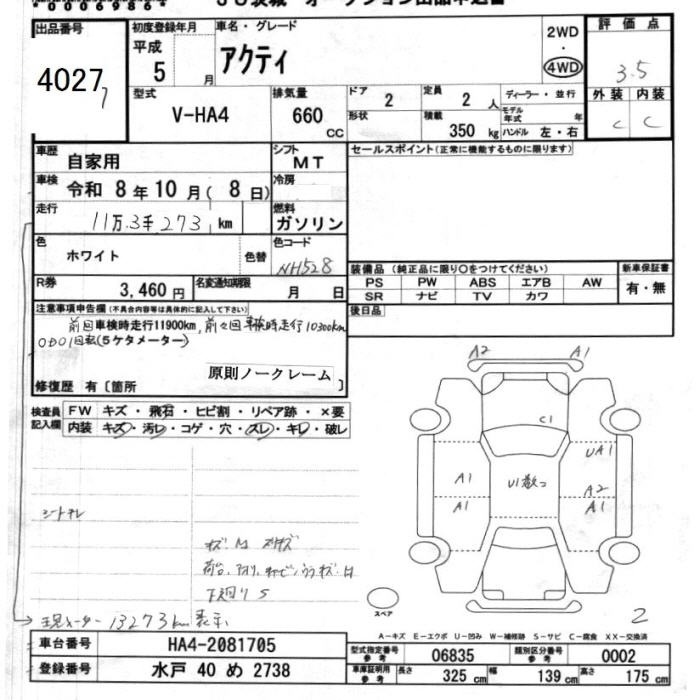 出品番号
4027
7
初度登録年月
平成
5 月
車名・グレード
アクティ
2WD
・
4WD
評価点
3.5
型式
V-HA4
排気量
660 cc
ドア
2
形状
定員
2 人
積載
350 kg
ディーラー・並行
モデル年式 年
ハンドル 左・右
外装 内装
C C
車歴
自家用
シフト
MT
セールスポイント(正常に機能するものに限ります)
車検
令和 8 年 10 月( 8 日)
冷房
走行
11万.3千 273 km
燃料
ガソリン
色
ホワイト
色替
色コード
NH528
R券
3,460 円
名変通知期限
月 日
装備品(純正品に限り○をつけてください)
新車保証書
PS PW ABS エアB AW
有・無
SR ナビ TV カワ
後日品
注意事項申告欄(不具合内容等は具体的に記入して下さい)
前回車検時走行11900km, 前々回車検時走行10300km
(5ケタメーター)
原則ノークレーム
修復歴 有〔箇所 〕
検査員記入欄
FW キズ・飛石・ヒビ割・リペア跡・×要
内装 キズ・汚レ・コゲ・穴・スレ・キレ・破レ
A2 A1
C1
UA1
A1
A2
A1
A1
シートキレ
下廻り S
スペア
2
現メーター 13273km 表示
A-キズ E-エクボ U-凹み W-補修跡 S-サビ C-腐食 XX-交換済
車台番号
HA4-2081705
登録番号
水戸 40 め 2738
型式指定番号
参考
06835
類別区分番号
参考
0002
車庫証明用
参考
長さ 325 cm
幅 139 cm
高さ 175 cm